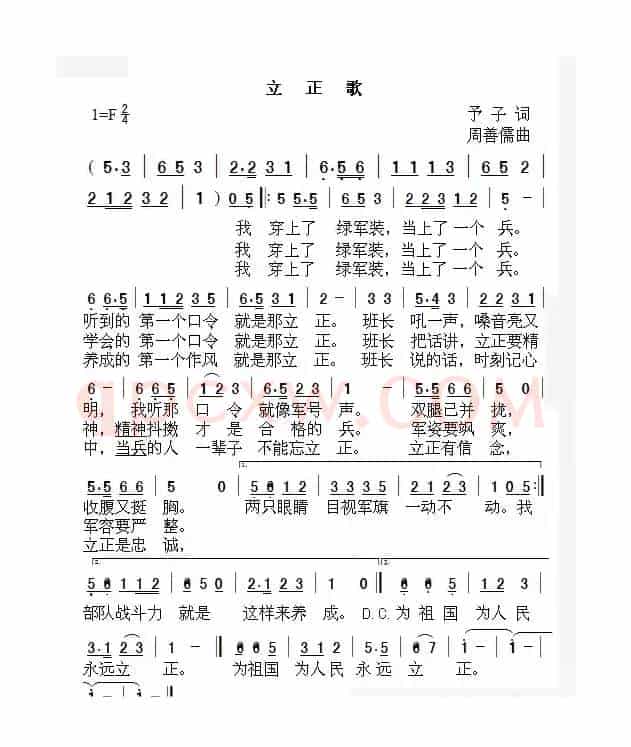 立 正 歌
1=F 2/4
予 子 词
周善儒曲
( 5·3 | 6 5 3 | 2·2 3 1 | 6·5 6 | 1 1 1 3 | 6·5 5 2 |
2 1 2 3 2 | 1 ) 0 5 |: 5 5 5·5 | 6 5 3 | 2 2 3 1 2 | 5 - |
我 穿上了 绿军装，当上了 一个 兵。
我 穿上了 绿军装，当上了 一个 兵。
我 穿上了 绿军装，当上了 一个 兵。
6 6·5 | 1 1 2 3 5 | 6·5 5 3 | 2 - | 3 3 | 5·4 3 | 2 2 3 1 |
听到的 第一个口令 就是那立 正。班长 吼一声，嗓音亮又
学会的 第一个口令 就是那立 正。班长 把话讲，立正要精
养成的 第一个作风 就是那立 正。班长 说的话，时刻记心
6 - | 6 6 5 | 1 2 3 | 6·5 2 3 | 1 - | 5·5 6 6 | 5 0 |
明， 我听那 口 令 就像军号 声。 双腿已并 拢，
神，精神抖擞 才 是 合 格的 兵。 军姿要飒 爽，
中，当兵的人 一辈子 不能忘立 正。 立正有信 念，
5·5 6 6 | 5 0 | 5 6 1 2 | 3 3 3 5 | 2 1 2 3 | 1 0 5 :|
收腹又挺 胸。 两只眼睛 目视军旗 一动不 动。我
军容要严 整。
立正是忠 诚，
5 6 1 1 2 | 6 5 0 | 2·1 2 3 | 1 0 | 6 6 5 | 1 2 3 |
部队战斗力 就是 这样来养 成。D.C.为 祖 国 为人 民
3·1 2 3 | 1 - | 6 6 5 | 3 1 2 3 | 5·5 | 6 7 | 1 - | 1 - |
永远立 正。 为祖国 为人民 永 远 立 正。
1 - | 1 - |